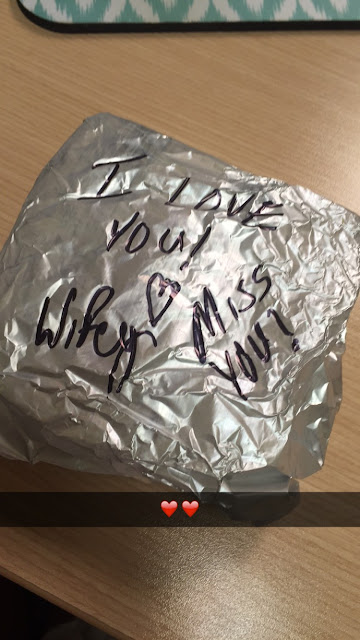 I LOVE
YOU!
Wifey ♡ MISS
YOU!
❤️❤️